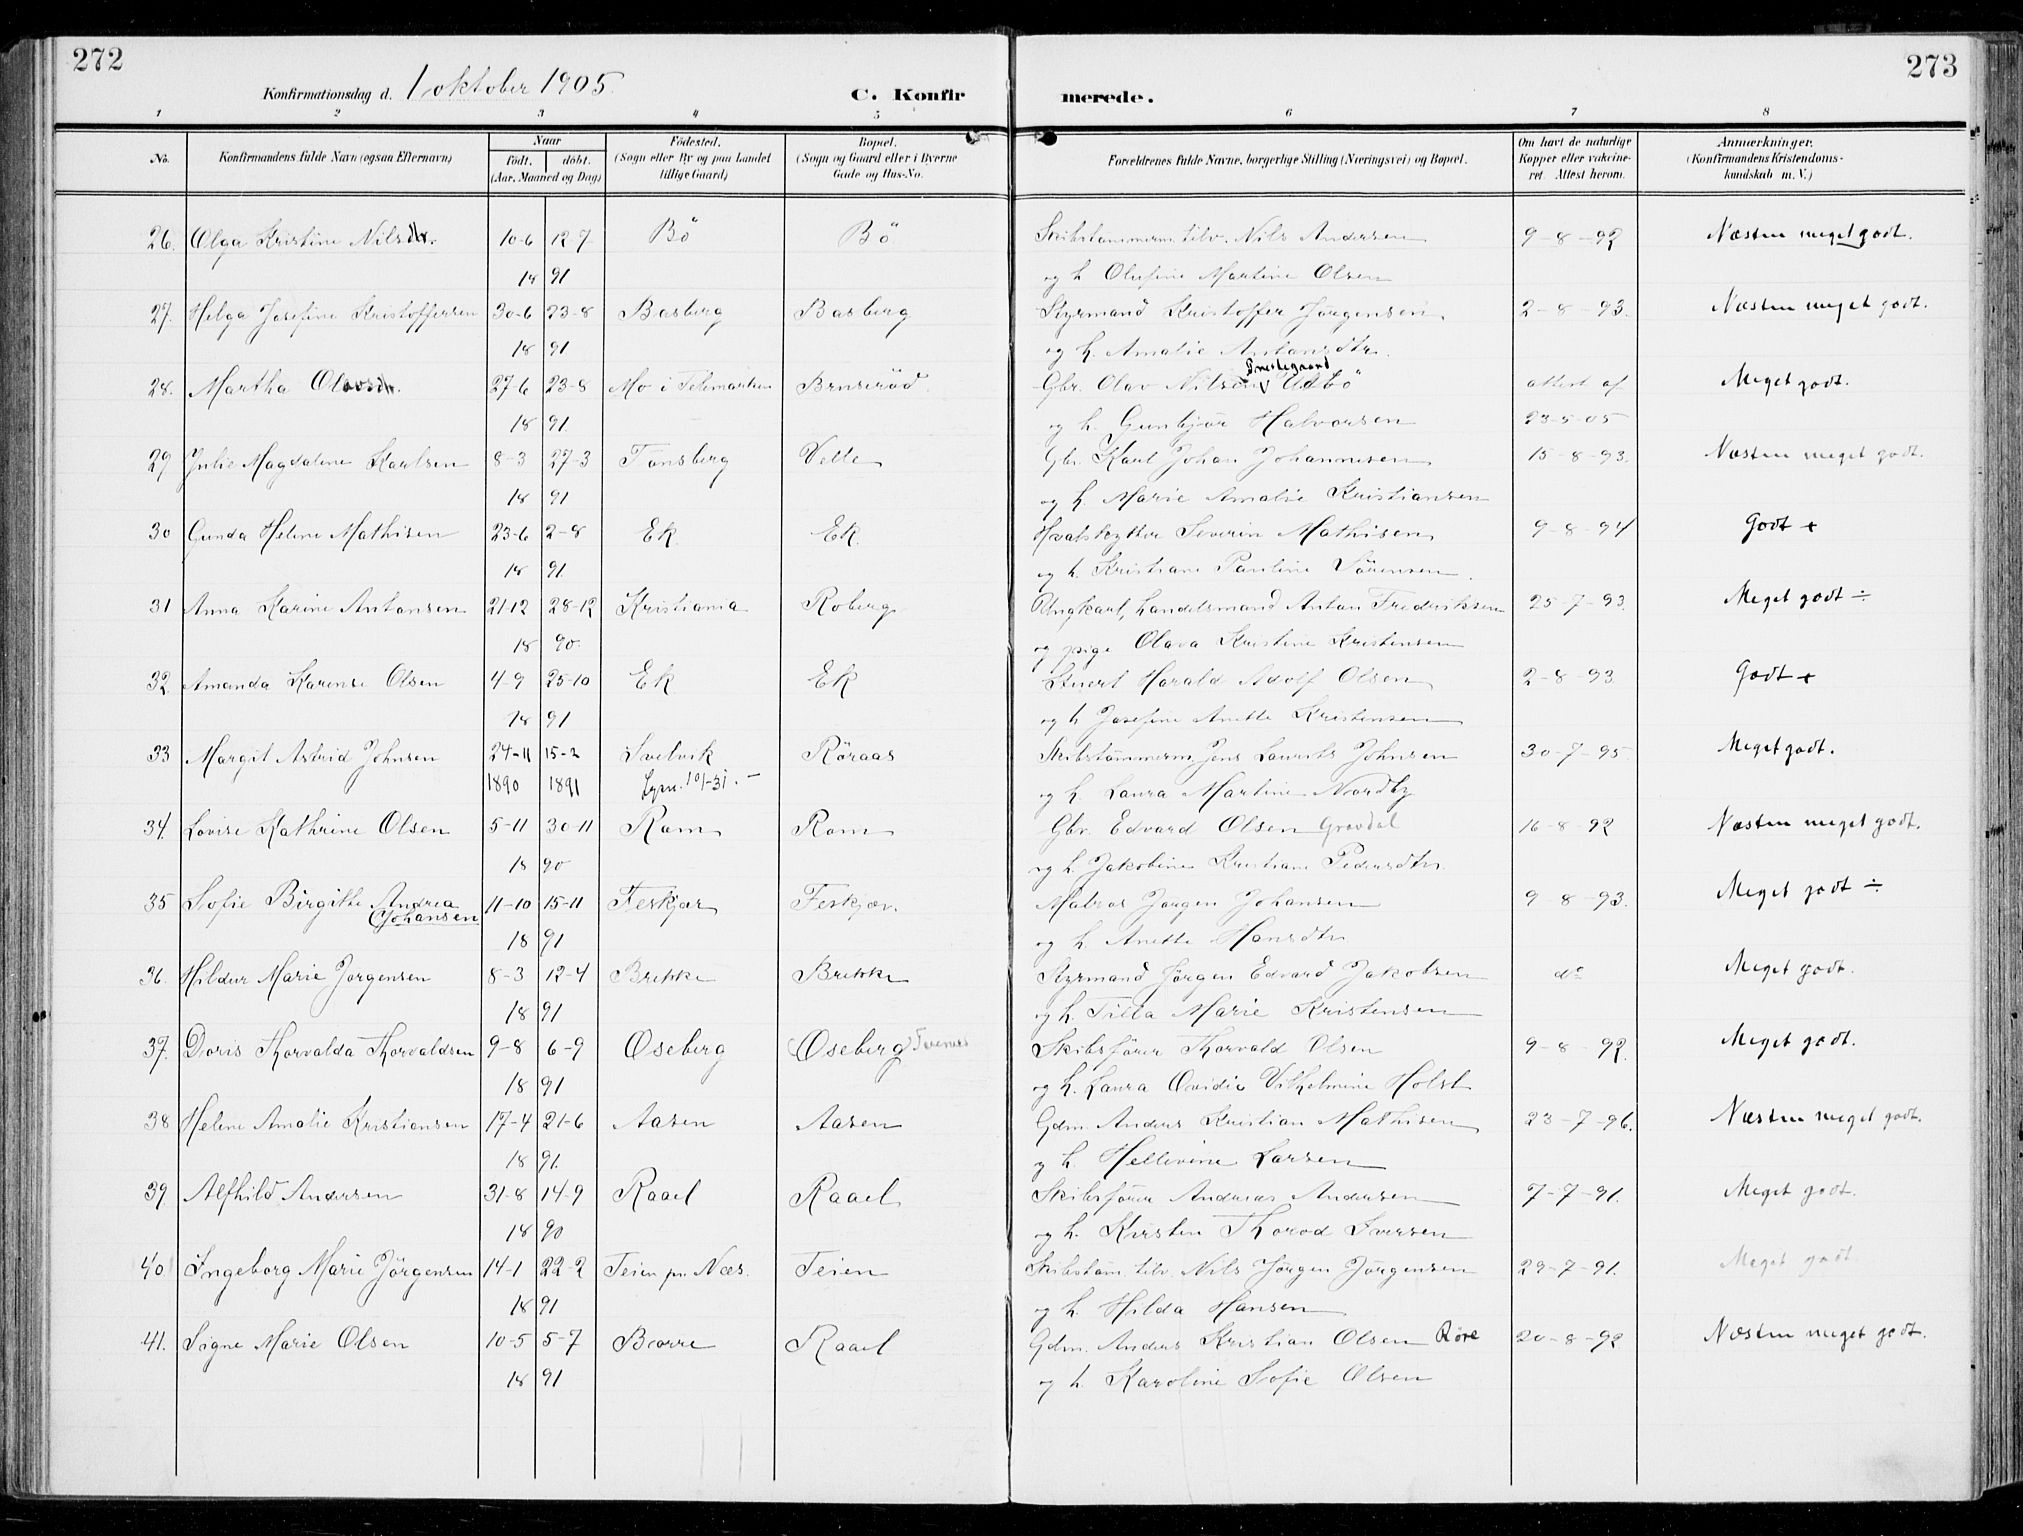 272
273
Konfirmationsdag d. 1 oktober 1905.
C. Konfir
merede.
1 2 3 4 5 6 7 8
No. Konfirmandens fulde Navn (ogsaa Efternavn) Naar födt. döbt. (Aar, Maaned og Dag) Födested. (Sogn eller By og paa Landet tillige Gaard) Bopæl. (Sogn og Gaard eller i Byerne Gade og Hus-No. Forældrenes fulde Navne, borgerlige Stilling (Næringsvei) og Bopæl. Om havt de naturlige Kopper eller vakcineret. Attest herom. Anmærkninger. (Konfirmandens Kristendomskundskab m. V.)
26. Olga Kristine Nilsdtr. 10-6 12-7 Bö Bö Skibstömmerm. tilv. Nils Andersen 9-8-92 Næsten meget godt.
18 91 og h. Olufine Martine Olsen
27. Helga Josefine Kristoffersen 30-6 23-8 Basberg Basberg Styrmand Kristoffer Jörgensen 2-8-93. Næsten meget godt.
18 91 og h. Amalie Antonsdtr.
28. Martha Olavsdtr. 27-6 23-8 Mo i Telemarken Bruseröd Gbr. Olav Nilsen Prestegaard Udbö attest af Meget godt.
18 91 og h. Gunbjör Halvorsen 23-5-05
29 Julie Magdalene Karlsen 8-3 27-3 Tönsberg Velle Gbr. Karl Johan Johannesen 15-8-93. Næsten meget godt.
18 91 og h. Marie Amalie Kristiansen
30 Gunda Helene Mathisen 23-6 2-8 Ek Ek Hvalskytter Severin Mathisen 9-8-94 Godt +
18 91. og h. Kristiane Pauline Sörensen
31 Anna Karine Antonsen 21-12 28-12 Kristiania Roberg Ungkarl, Handelsmand Anton Fredriksen 25-7-93. Meget godt ÷
18 90. og pige Olava Kristine Kristensen
32. Amanda Karense Olsen 4-9 25-10 Ek Ek Stuert Harald Adolf Olsen 2-8-93 Godt +
18 91 og h. Josefine Anette Kristensen
33 Margit Astrid Johnsen 24-11 15-2 Svelvik Röraas Skibstömmerm. Jens Laurits Johnsen 30-7-95. Meget godt.
1890 1891 og h. Laura Martine Nordby
34. Lovise Kathrine Olsen 5-11 30-11 Rom Rom Gbr. Edvard Olsen Gravdal 16-8-92 Næsten meget godt.
18 90 og h. Jakobine Kristiane Pedersdtr.
35 Sofie Birgitte Andrea Johansen 11-10 15-11 Feskjær Feskjær. Matros Jörgen Johansen 9-8-93. Meget godt ÷
18 91 og h. Anette Hansdtr
36. Hildur Marie Jörgensen 8-3 12-4 Brekke Brekke Styrmand Jörgen Edvard Jakobsen do Meget godt.
18 91 og h. Tilla Marie Kristensen
37. Doris Thorvalda Thorvaldsen 9-8 6-9 Oseberg Oseberg Skibsförer Thorvald Olsen 9-8-92. Meget godt.
18 91 og h. Laura Ovidie Vilhelmine Holst
38 Helene Amalie Kristiansen 17-4 21-6 Aasen Aasen Gdm. Anders Kristian Mathisen 23-7-96. Næsten meget godt.
18 91. og h. Hellevine Larsen
39. Alfhild Andersen 31-8 14-9 Raael Raael Skibsförer Andreas Andersen 7-7-91. Meget godt.
18 90 og h. Kirsten Thorod Iversen
40. Ingeborg Marie Jörgensen 14-1 22-2 Teien pr. Næs. Teien Skibstöm. tilv. Nils Jörgen Jörgensen 29-7-91. Meget godt
18 91 og h. Hilda Hansen
41. Signe Marie Olsen 10-5 5-7 Borre Raael Gdm. Anders Kristian Olsen Röre 20-8-92 Næsten meget godt.
18 91 og h. Karoline Sofie Olsen